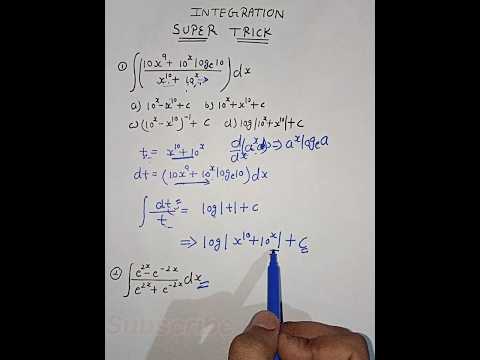 INTEGRATION
SUPER TRICK
① ∫(10x⁹ + 10ˣ logₑ10 / x¹⁰ + 10ˣ) dx
a) 10ˣ - x¹⁰ + c b) 10ˣ + x¹⁰ + c
c) (10ˣ - x¹⁰)⁻¹ + c d) log|10ˣ + x¹⁰| + c
t = x¹⁰ + 10ˣ d/dx (aˣ) ⇒ aˣ logₑa
dt = (10x⁹ + 10ˣ logₑ10) dx
∫ dt/t = log|t| + c
⇒ log|x¹⁰ + 10ˣ| + c
② ∫ e²ˣ - e⁻²ˣ / e²ˣ + e⁻²ˣ dx
Subscribe